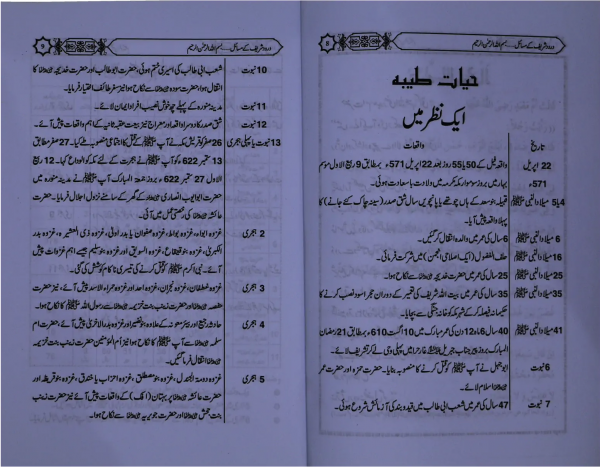 درود شریف کے مسائل ... بسم اللہ الرحمن الرحیم
حیات طیبہ
ایک نظر میں
تاریخ واقعات
22 اپریل واقعہ فیل کے 50 یا 55 روز بعد 22 اپریل 571ء بمطابق 9 ربیع الاول موسم
571ء بہار میں بروز سوموار مکہ مکرمہ میں ولادت باسعادت ہوئی۔
4یا5 میلاد النبی ﷺ قبیلہ بنو سعد کے ہاں چوتھے یا پانچویں سال شق صدر (سینہ چاک کئے جانے) کا
پہلا واقعہ پیش آیا۔
6 میلاد النبی ﷺ 6 سال کی عمر میں والدہ انتقال کر گئیں۔
16 میلاد النبی ﷺ حلف الفضول (ایک اصلاحی انجمن) میں شرکت فرمائی۔
25 میلاد النبی ﷺ 25 سال کی عمر میں حضرت خدیجہ رضی اللہ عنہا سے نکاح ہوا۔
35 میلاد النبی ﷺ 35 سال کی عمر میں بیت اللہ شریف کی تعمیر کے دوران حجر اسود نصب کرنے کا
حکیمانہ فیصلہ کر کے شہر مکہ کو خانہ جنگی سے بچایا۔
41 میلاد النبی ﷺ 40 سال 6 ماہ 12 دن کی عمر مبارک میں 10 اگست 610ء بمطابق 21 رمضان
المبارک بروز پیر جناب جبریل علیہ السلام غار حرا میں پہلی وحی لے کر تشریف لائے۔
6 نبوت ابو جہل نے آپ ﷺ کو قتل کرنے کا منصوبہ بنایا۔ حضرت حمزہ اور حضرت عمر
رضی اللہ عنہما اسلام لائے۔
7 نبوت 47 سال کی عمر میں شعب ابی طالب میں قید و بند کی آزمائش شروع ہوئی۔
درود شریف کے مسائل ... بسم اللہ الرحمن الرحیم 9
10 نبوت شعب ابی طالب کی اسیری ختم ہوئی، حضرت ابو طالب اور حضرت خدیجہ رضی اللہ عنہا کا
انتقال ہوا، حضرت سودہ رضی اللہ عنہا سے نکاح ہوا نیز سفر طائف اختیار فرمایا۔
11 نبوت مدینہ منورہ کے پہلے چھ خوش نصیب افراد ایمان لائے۔
12 نبوت شق صدر کا دوسرا واقعہ اور معراج نیز بیعت عقبہ ثانیہ کے اہم واقعات پیش آئے۔
13 نبوت یا پہلی ہجری 26 صفر کو قریش مکہ نے آپ ﷺ کے قتل کا اجتماعی منصوبہ طے کیا۔ 27 صفر بمطابق
13 ستمبر 622ء کو آپ ﷺ نے ہجرت کے لئے مکہ کو الوداع کہا۔ 12 ربیع
الاول 27 ستمبر 622ء بروز جمعۃ المبارک آپ ﷺ نے مدینہ منورہ میں
حضرت ابو ایوب انصاری رضی اللہ عنہ کے گھر کے سامنے نزول اجلال فرمایا۔ حضرت
عائشہ رضی اللہ عنہا کی رخصتی عمل میں آئی۔
2 ہجری غزوہ ابواء، غزوہ بواط، غزوہ صفوان یا بدر اولیٰ، غزوہ ذی العشیرہ، غزوہ بدر
الکبریٰ، غزوہ بنو قینقاع، غزوہ السویق اور غزوہ بنو سلیم جیسے اہم غزوات پیش
آئے۔ نبی اکرم ﷺ کو قتل کرنے کی تیسری ناکام کوشش کی گئی۔
3 ہجری غزوہ غطفان، غزوہ نجران، غزوہ احد اور غزوہ حمراء الاسد پیش آئے، نیز حضرت
حفصہ رضی اللہ عنہا اور حضرت زینب بنت خزیمہ رضی اللہ عنہا کا رسول اللہ ﷺ سے نکاح ہوا۔
4 ہجری حادثہ رجیع اور بئر معونہ کے علاوہ بنو نضیر اور غزوہ بدر الاخریٰ پیش آئے، نیز حضرت ام
سلمہ رضی اللہ عنہا سے آپ ﷺ کا نکاح ہوا نیز ام المؤمنین حضرت زینب بنت خزیمہ
رضی اللہ عنہا انتقال فرما گئیں۔
5 ہجری غزوہ دومۃ الجندل، غزوہ بنو مصطلق، غزوہ احزاب یا خندق، غزوہ بنو قریظہ اور
حضرت عائشہ رضی اللہ عنہا پر بہتان (افک) کے واقعات پیش آئے نیز حضرت زینب
بنت جحش رضی اللہ عنہا اور حضرت جویریہ رضی اللہ عنہا سے نکاح ہوا۔